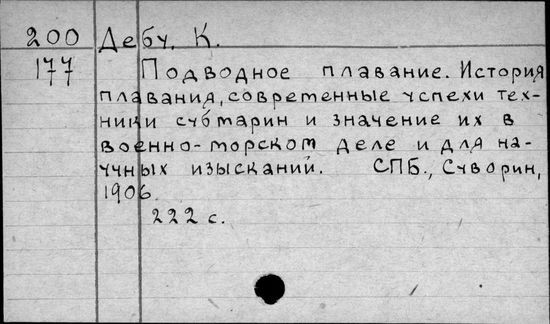 200 Дебу, К.
177 Подводное плавание. История
плавания, современные успехи тех-
ники субмарин и значение их в
военно-морском деле и для на-
учных изысканий. СПБ., Суворин,
1906.
222 с.